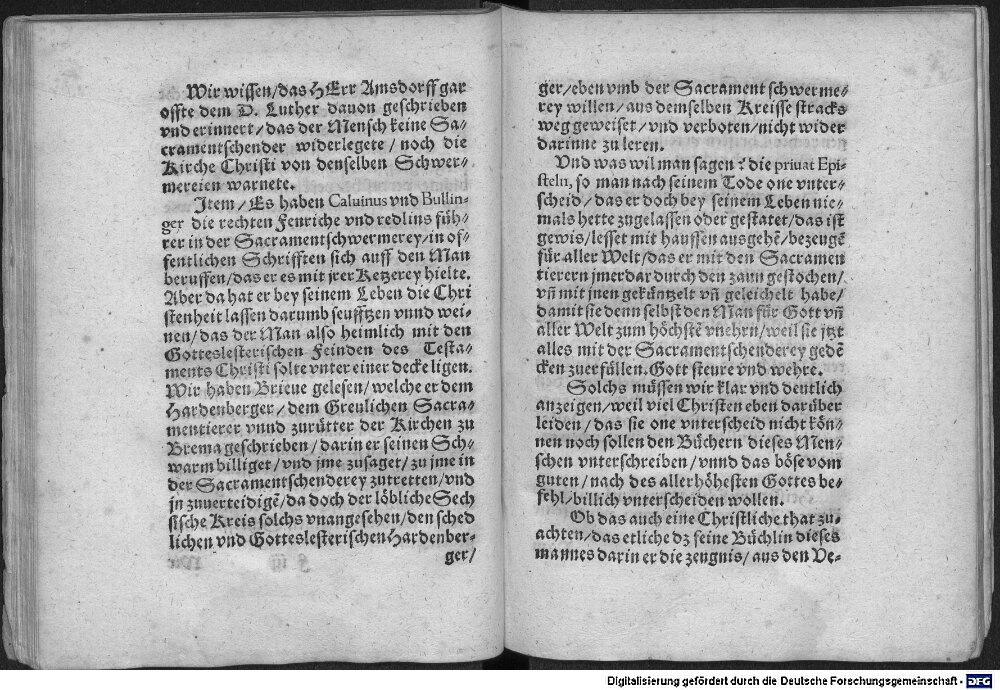 Wir wissen/das HErr Amsdorff gar
offte dem D. Luther dauon geschrieben
vnd erinnert/das der Mensch keine Sa-
cramentschender widerlegete/noch die
Kirche Christi von denselben Schwer-
mereien warnete.
Item/Es haben Caluinus vnd Bullin-
ger die rechten Fenriche vnd redlins füh-
rer in der Sacramentschwermerey/in of-
fentlichen Schrifften sich auff den Man
beruffen/das er es mit jrer Ketzerey hielte.
Aber da hat er bey seinem Leben die Chri
stenheit lassen darumb seufftzen vnnd wei-
nen/das der Man also heimlich mit den
Gotteslesterischen Feinden des Testa-
ments Christi solte vnter einer decke ligen.
Wir haben Brieue gelesen/welche er dem
Hardenberger/dem Greulichen Sacra-
mentierer vnnd zurütter der Kirchen zu
Brema geschrieben/darin er seinen Sch-
warm billiget/vnd jme zusaget/zu jme in
der Sacramentschenderey zutretten/vnd
jn zuuerteidigē/da doch der löbliche Sech
sische Kreis solchs vnangesehen/den sched
lichen vnd Gotteslesterischen Hardenber-
ger/
ger/eben vmb der Sacrament schwerme-
rey willen/aus demselben Kreisse stracks
weg geweiset/vnd verboten/nicht wider
darinne zu leren.
Vnd was wil man sagen? die priuat Epi-
steln, so man nach seinem Tode one vnter-
scheid/das er doch bey seinem Leben nie-
mals hette zugelassen oder gestatet/das ist
gewis/lesset mit hauffen ausgehē/bezeugē
für aller Welt/das er mit den Sacramen
tierern jmerdar durch den zaun gestochen/
vn̄ mit jnen geküntzelt vn̄ geleichelt habe/
damit sie denn selbst den Man für Gott vn̄
aller Welt zum höchstē vnehrn/weil sie jtzt
alles mit der Sacramentschenderey gedē
cken zuerfüllen. Gott steure vnd wehre.
Solchs müssen wir klar vnd deutlich
anzeigen/weil viel Christen eben darüber
leiden/das sie one vnterscheid nicht kön-
nen noch sollen den Büchern dieses Men-
schen vnterschreiben/vnnd das böse vom
guten/nach des aller höhesten Gottes be-
fehl/billich vnterscheiden wollen.
Ob das auch eine Christliche that zu-
achten/das etliche dz seine Büchlin dieses
mannes darin er die zeugnis/aus den Ve-
Digitalisierung gefördert durch die Deutsche Forschungsgemeinschaft - DFG